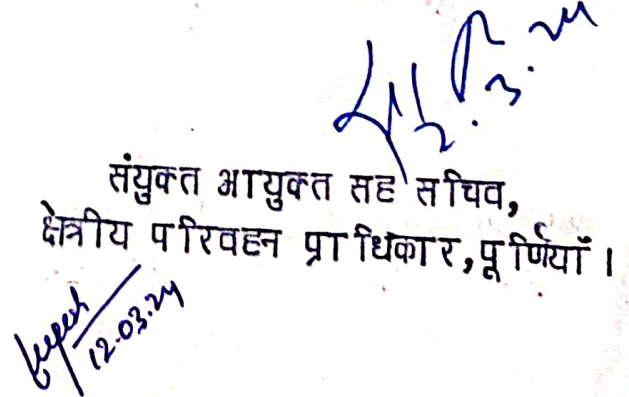 12.3.24
संयुक्त आयुक्त सह सचिव,
क्षेत्रीय परिवहन प्राधिकार,पूर्णियाँ ।
12.03.24